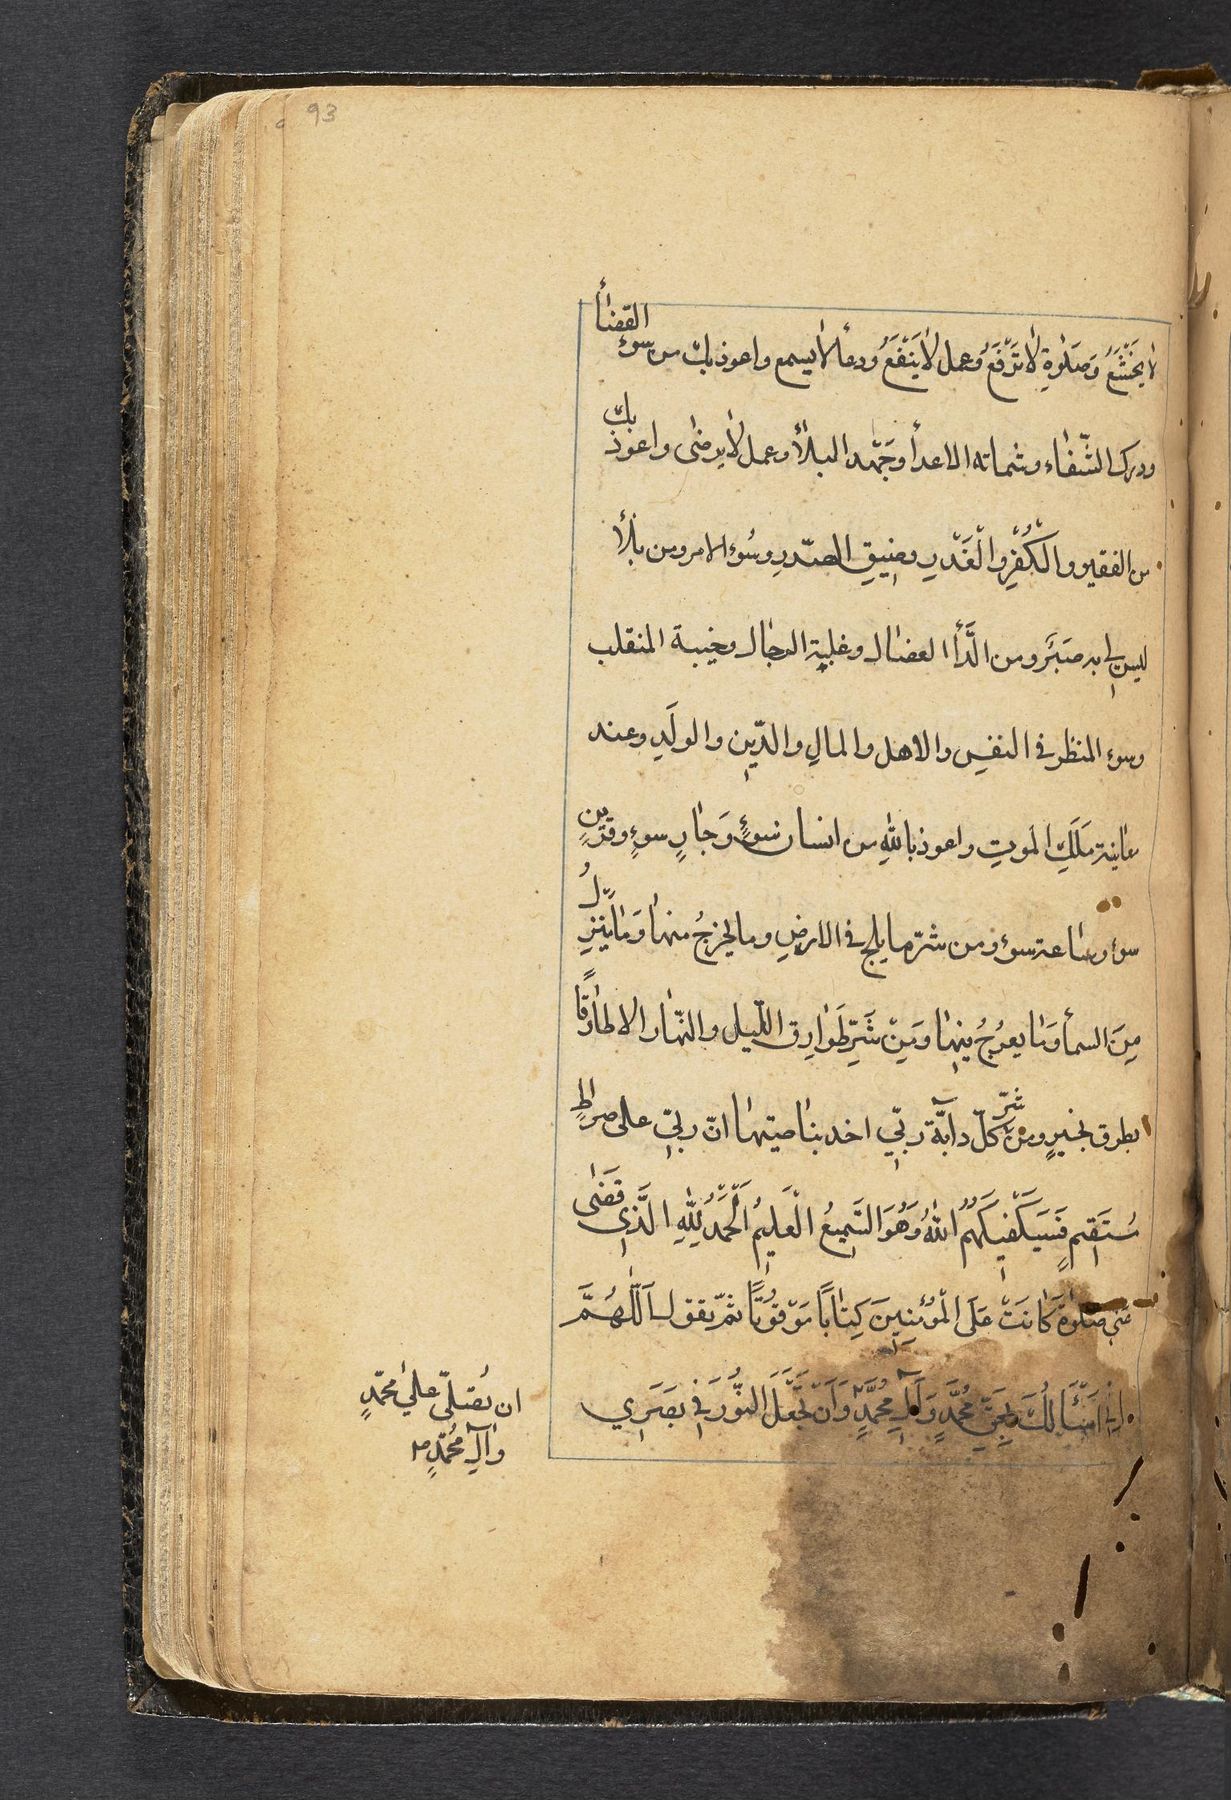 93
لا يخشَعُ وَصَلوٰةٍ لا تَرْفَعُ وَعمل لا يَنْفَعُ ودعأ لا يسمع واعوذ بك من سوءِ القضأ
ودرك الشّقاء وشماته الاعدأ وجَهْد البلأ وعمل لا يرضى واعوذ بك
من الفقير والْكُفْرِ والْغَدْرِ وضيقِ الصّدرِ وسُوء الامر ومن بلأ
ليس لي به صَبْرَ ومن الدَّأ العضال وغلبة الرجال وخيبة المنقلب
وسوءِ المنظر في النفسِ والاهل والمالِ والدّينِ والولَدِ وعند
معاينة مَلَكِ الموتِ واعوذ باللهِ من انسان سُوءٍ وَجارٍ سوءٍ وقَرينٍ
سوءٍ وساعة سوء ومن شرّ ما يلج في الارضِ وما يخرجُ منها وَما ينزِلُ
مِنَ السمأ وَما يعرُجُ فيها وَمِنْ شَرِّ طَوارِق اللّيل والنّهار الا طارقًا
يطرق بخيرٍ ومن شرّ كلّ دابَّة ربّي اخذ بناصيتها انّ ربّي على صراطٍ
مُستَقيمٍ فَسَيَكْفيكَهُمُ اللهُ وَهُوَ السَّميعُ الْعَليمُ اَلْحَمْدُ لِلّٰهِ الَّذي قَضٰى
عَنّي صَلوٰةً كانَتْ عَلَى الْمُؤمِنينَ كِتاباً مَوْقوُتاً ثمّ تقول اَللّٰهُمَّ
اِنّي اَسْئَالُكَ بِحَقِّ مُحَمَّدٍ وَآلِ مُحَمَّدٍ وَاَنْ تَجْعَلَ النُّورَ في بَصَري
ان تُصَلّي على محمّدٍ
وآلِ مُحمّدٍ